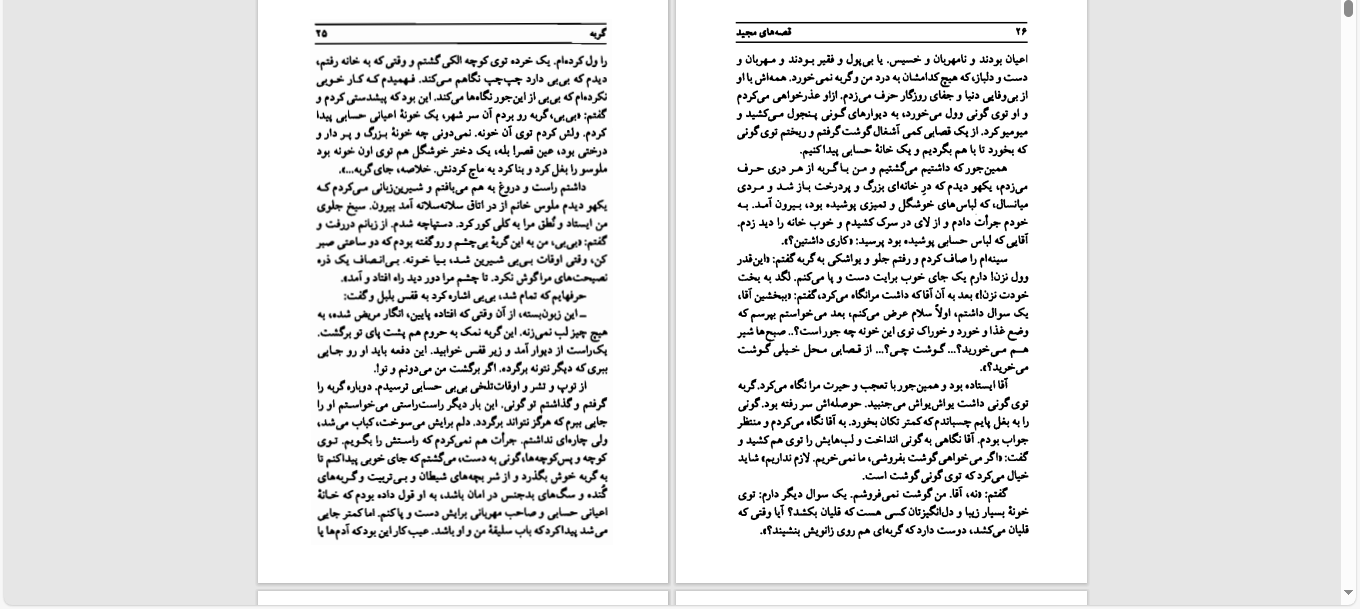 گربه ۲۵
را ول کرده‌ام. یک خرده توی کوچه الکی گشتم و وقتی که به خانه رفتم،
دیدم که بی‌بی دارد چپ‌چپ نگاهم می‌کند. فهمیدم که کار خوبی
نکرده‌ام که بی‌بی از این‌جور نگاه‌ها می‌کند. این بود که پیشدستی کردم و
گفتم: «بی‌بی، گربه رو بردم آن سر شهر، یک خونهٔ اعیانی حسابی پیدا
کردم. ولش کردم توی آن خونه. نمی‌دونی چه خونهٔ بزرگ و پر دار و
درختی بود، عین قصر! بله، یک دختر خوشگل هم توی اون خونه بود
ملوسو را بغل کرد و بنا کرد به ماچ کردنش. خلاصه، جای گربه...».
داشتم راست و دروغ به هم می‌بافتم و شیرین‌زبانی می‌کردم که
یکهو دیدم ملوس خانم از در اتاق سلانه‌سلانه آمد بیرون. سیخ جلوی
من ایستاد و نُطق مرا به کلی کور کرد. دستپاچه شدم. از زبانم دررفت و
گفتم: «بی‌بی، من به این گربهٔ بی‌چشم و رو گفته بودم که دو ساعتی صبر
کن، وقتی اوقات بی‌بی شیرین شد، بیا خونه. بی‌انصاف یک ذره
نصیحت‌های مرا گوش نکرد. تا چشم مرا دور دید راه افتاد و آمد».
حرفهایم که تمام شد، بی‌بی اشاره کرد به قفس بلبل و گفت:
ـ این زبون‌بسته، از آن وقتی که افتاده پایین، انگار مریض شده، به
هیچ چیز لب نمی‌زنه. این گربه نمک به حروم هم پشت پای تو برگشت.
یک‌راست از دیوار آمد و زیر قفس خوابید. این دفعه باید او رو جایی
ببری که دیگر نتونه برگرده. اگر برگشت من می‌دونم و تو!.
از توپ و تشر و اوقات‌تلخی بی‌بی حسابی ترسیدم. دوباره گربه را
گرفتم و گذاشتم تو گونی. این بار دیگر راست‌راستی می‌خواستم او را
جایی ببرم که هرگز نتواند برگردد. دلم برایش می‌سوخت، کباب می‌شد،
ولی چاره‌ای نداشتم. جرأت هم نمی‌کردم که راستش را بگویم. توی
کوچه و پس‌کوچه‌ها، گونی به دست، می‌گشتم که جای خوبی پیدا کنم تا
به گربه خوش بگذرد و از شر بچه‌های شیطان و بی‌تربیت و گربه‌های
گُنده و سگ‌های بدجنس در امان باشد، به او قول داده بودم که خانهٔ
اعیانی حسابی و صاحب مهربانی برایش دست و پا کنم. اما کمتر جایی
می‌شد پیدا کرد که باب سلیقهٔ من و او باشد. عیب کار این بود که آدم‌ها یا
۲۶ قصه‌های مجید
اعیان بودند و نامهربان و خسیس. یا بی‌پول و فقیر بودند و مهربان و
دست و دلباز، که هیچ کدامشان به درد من و گربه نمی‌خورد. همه‌اش با او
از بی‌وفایی دنیا و جفای روزگار حرف می‌زدم. ازاو عذرخواهی می‌کردم
و او توی گونی وول می‌خورد، به دیوارهای گونی پنجول می‌کشید و
میومیو کرد. از یک قصابی کمی آشغال گوشت گرفتم و ریختم توی گونی
که بخورد تا با هم بگردیم و یک خانهٔ حسابی پیدا کنیم.
همین‌جور که داشتیم می‌گشتیم و من با گربه از هر دری حرف
می‌زدم، یکهو دیدم که درِ خانه‌ای بزرگ و پردرخت باز شد و مردی
میانسال، که لباس‌های خوشگل و تمیزی پوشیده بود، بیرون آمد. به
خودم جرأت دادم و از لای در سرک کشیدم و خوب خانه را دید زدم.
آقایی که لباس حسابی پوشیده بود پرسید: «کاری داشتین؟».
سینه‌ام را صاف کردم و رفتم جلو و یواشکی به گربه گفتم: «این‌قدر
وول نزن! دارم یک جای خوب برایت دست و پا می‌کنم. لگد به بخت
خودت نزن!» بعد به آن آقا که داشت مرا نگاه می‌کرد، گفتم: «ببخشین آقا،
یک سوال داشتم، اولاً سلام عرض می‌کنم، بعد می‌خواستم بپرسم که
وضع غذا و خورد و خوراک توی این خونه چه جور است؟.. صبح‌ها شیر
هم می‌خورید؟... گوشت چی؟... از قصابی محل خیلی گوشت
می‌خرید؟».
آقا ایستاده بود و همین‌جور با تعجب و حیرت مرا نگاه می‌کرد. گربه
توی گونی داشت یواش‌یواش می‌جنبید. حوصله‌اش سر رفته بود. گونی
را به بغل پایم چسباندم که کمتر تکان بخورد. به آقا نگاه می‌کردم و منتظر
جواب بودم. آقا نگاهی به گونی انداخت و لب‌هایش را توی هم کشید و
گفت: «اگر می‌خواهی گوشت بفروشی، ما نمی‌خریم. لازم نداریم» شاید
خیال می‌کرد که توی گونی گوشت است.
گفتم: «نه، آقا. من گوشت نمی‌فروشم. یک سوال دیگر دارم: توی
خونهٔ بسیار زیبا و دل‌انگیزتان کسی هست که قلیان بکشد؟ آیا وقتی که
قلیان می‌کشد، دوست دارد که گربه‌ای هم روی زانویش بنشیند؟».